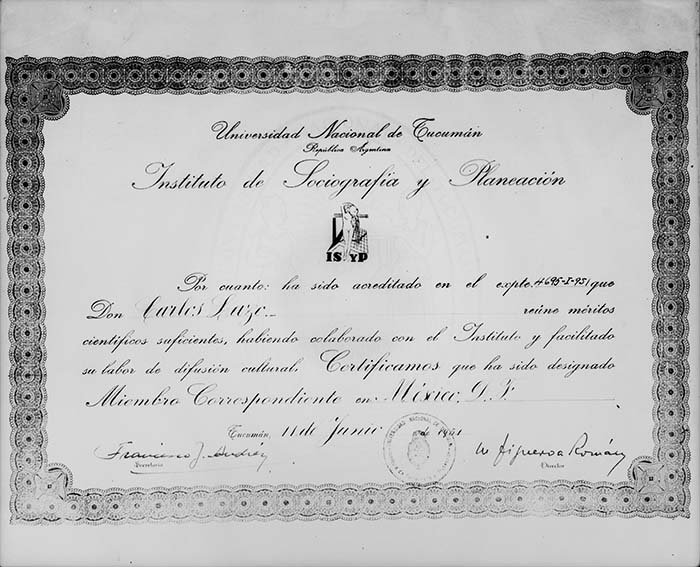 Universidad Nacional de Tucumán
República Argentina
Instituto de Sociografía y Planeación
IS YP
Por cuanto: ha sido acreditado en el expte. 4695-I-951 que
Don Carlos Lazo reúne méritos
científicos suficientes, habiendo colaborado con el Instituto y facilitado
su labor de difusión cultural, Certificamos que ha sido designado
Miembro Correspondiente en México, D. F.
Tucumán, 11 de Junio de 1951
Francisco J. W. Figueroa Román
Secretario Director